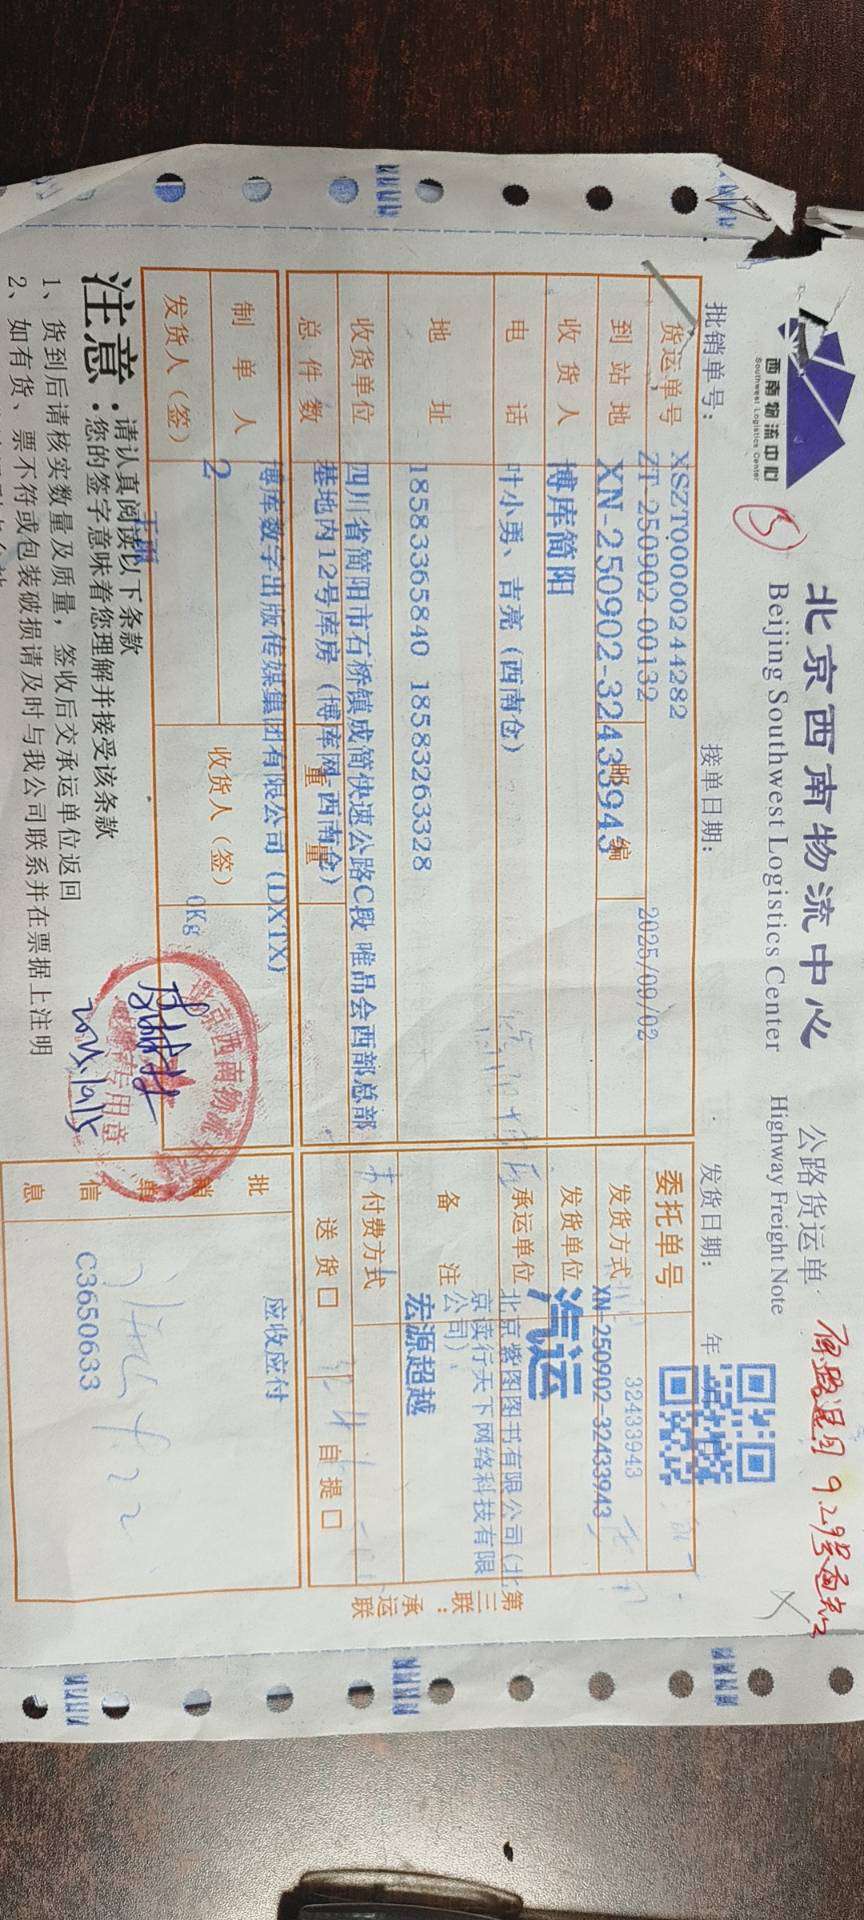 西南物流中心
Southwest Logistics Center
北京西南物流中心
Beijing Southwest Logistics Center
公路货运单
Highway Freight Note
5
批销单号：
接单日期：
发货日期：
年
XSZT000000244282
货运单号
ZT-250902-00132
2025/09/02
到站地
XN-250902-32433943
邮编
收货人
博库简阳
电话
叶小勇、吉亮（西南仓）
地址
18583365840 18583263328
收货单位
四川省简阳市石桥镇成简快速公路C段 唯品会西部总部
基地内12号库房（博库网-西南仓）
总件数
重量
博库数字出版传媒集团有限公司（DXTX）
制单人
2
收货人（签）
0Kg
发货人（签）
委托单号
32433943
发货方式
XN-250902-32433943
发货单位
汽运
承运单位
北京紫图图书有限公司（北
京读行天下网络科技有限
公司）
备注
宏源超越
付费方式
送货□
自提□
批销单信息
应收应付
C3650633
第三联：承运联
注意：
请认真阅读以下条款
您的签字意味着您理解并接受该条款
1、货到后请核实数量及质量，签收后交承运单位返回
2、如有货、票不符或包装破损请及时与我公司联系并在票据上注明